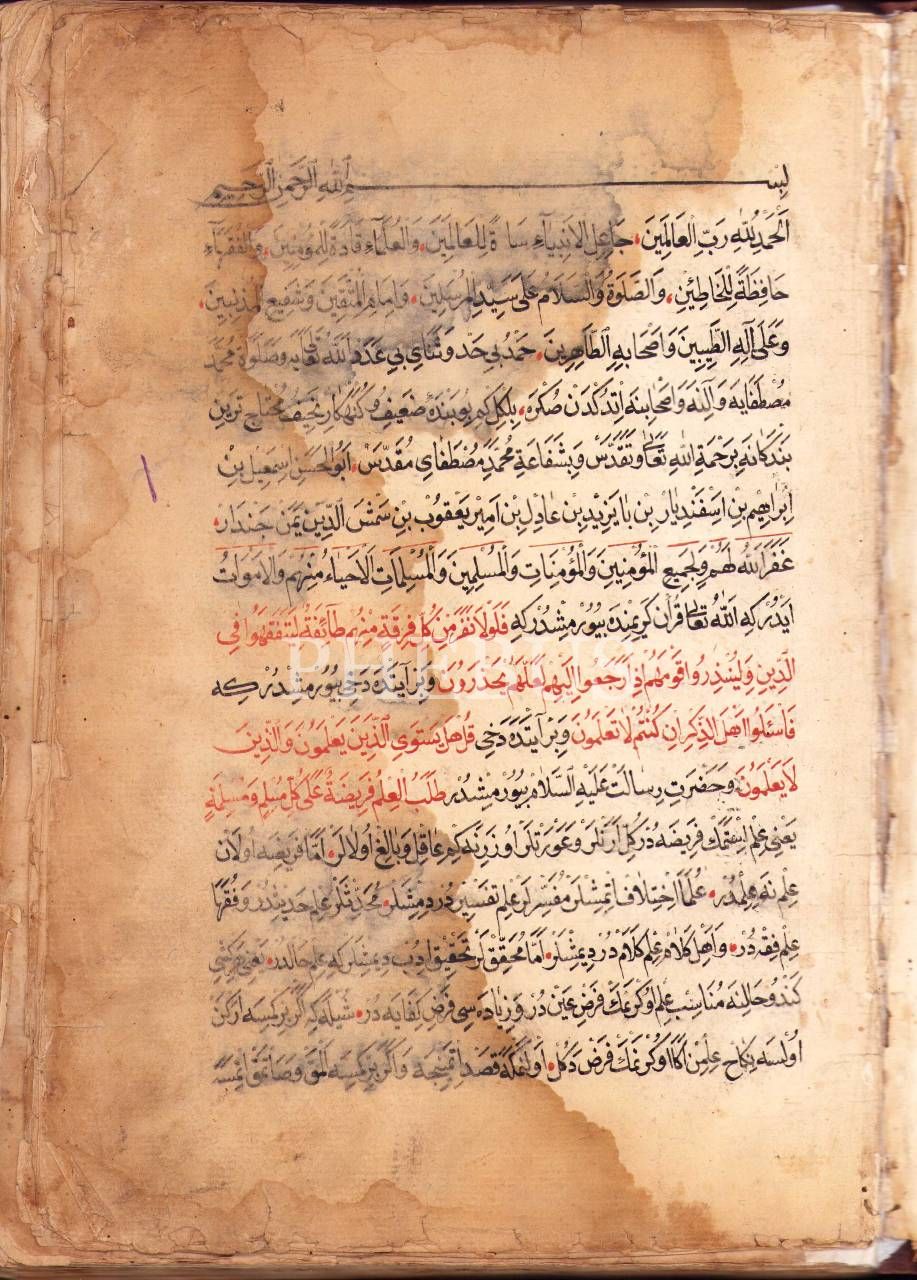 بسم الله الرحمن الرحيم
اَلْحَمْدُ لِلّٰهِ رَبِّ الْعَالَمِينَ، جَاعِلِ الْاَنْبِيَآءِ سَادَةً لِلْعَالَمِينَ، وَالْعُلَمَآءِ قَادَةً لِلْمُؤْمِنِينَ، وَالْفُقَهَآءِ
حَافِظَةً لِلْخَاطِئِينَ، وَالصَّلٰوةُ وَالسَّلَامُ عَلٰى سَيِّدِ الْمُرْسَلِينَ، وَاِمَامِ الْمُتَّقِينَ وَشَفِيعِ الْمُذْنِبِينَ،
وَعَلٰى آلِهِ الطَّيِّبِينَ وَاَصْحَابِهِ الطَّاهِرِينَ، حَمْدِ بِي حَدْ وَثَنَايِ بِي عَدَدْ اللّٰه تَعَالَى يَه وَصَلَوةُ مُحَمَّدِ
مُصْطَفَايَه وَآلِنَه وَاَصْحَابِنَه اِتْدُكْدَنْ صُكْرَه، بِلْكِلْ كِم بُو بَنْدَهٔ ضَعِيفُ وكُنَهْكَارِ نَحِيفُ مُحْتَاج تَرِينِ
بَنْدَكَانَهِ بَرَحْمَةِ اللّٰهِ تَعَالٰى وَتَقَدَّسْ وَبِشَفَاعَةِ مُحَمَّدِ مُصْطَفَايِ مُقَدَّسْ، اَبُو الْحَسَنِ اِسْمٰعِيل بِنْ
اِبْرَاهِيم بِنِ اِسْفَنْدِيَارْ بْنِ بَايَزِيد بْنِ عَادِلْ بْنِ اَمِيرْ يَعْقُوبْ بْنِ شَمْسُ الدِّينْ يَمَنْ جَنْدَارْ،
غَفَرَ اللّٰهُ لَهُمْ وَلِجَمِيعِ الْمُؤْمِنِينَ وَالْمُؤْمِنَاتِ وَالْمُسْلِمِينَ وَالْمُسْلِمَاتِ الْاَحْيَاءِ مِنْهُمْ وَالْاَمْوَاتِ
اَيْدُرْ كِه اَللّٰهُ تَعَالٰى قُرْآنِ كَرِيمِنْدَه بُيُورْمِشْدُرْ كِه فَلَوْلَا نَفَرَ مِنْ كُلِّ فِرْقَةٍ مِنْهُمْ طَآئِفَةٌ لِيَتَفَقَّهُوا فِي
الدِّينِ وَلِيُنْذِرُوا قَوْمَهُمْ اِذَا رَجَعُوا اِلَيْهِمْ لَعَلَّهُمْ يَحْذَرُونَ وَبِرْ آيَتْدَه دَخِي بُيُورْمِشْدُرْ كِه
فَاسْئَلُوا اَهْلَ الذِّكْرِ اِنْ كُنْتُمْ لَا تَعْلَمُونَ وَبِرْ آيَتْدَه دَخِي قُلْ هَلْ يَسْتَوِي الَّذِينَ يَعْلَمُونَ وَالَّذِينَ
لَا يَعْلَمُونَ، وَحَضْرَتِ رِسَالَتْ عَلَيْهِ السَّلَامْ بُيُورْمِشْدُرْ طَلَبُ الْعِلْمِ فَرِيضَةٌ عَلٰى كُلِّ مُسْلِمٍ وَمُسْلِمَةٍ
يَعْنِي عِلْم اِسْتَمَكْ فَرِيضَه دُرْ كُلِّ اَرَنْلَرْ وَعَوْرَتْلَرْ اُوزَرِنَه كِم عَاقِلْ وَبَالِغْ اُولَالَرْ، اَمَّا فَرِيضَه اُولَانْ
عِلْم نَه عِلْمدُرْ، عُلَمَا اِخْتِلَافْ اِتْمِشْلَرْ مُفَسِّرْلَرْ عِلْمِ تَفْسِيرْدُرْ دِمِشْلَرْ، مُحَدِّثْلَرْ عِلْمِ حَدِيثْدُرْ وَفُقَهَا
عِلْمِ فِقْه دُرْ، وَاَهْلِ كَلَامْ عِلْمِ كَلَامْ دُرْ دِيمِشْلَرْ، اَمَّا مُحَقِّقْلَرْ تَحْقِيقْ اِدُبْ دِيمِشْلَرْ كِه عِلْمِ حَالدُرْ، يَعْنِي هَرْ كِشِي
كَنْدُو حَالِنَه مُنَاسِبْ عِلْمْ اُوكْرَنْمَكْ فَرْضِ عَيْنْ دُرْ وَزِيَادَه سِي فَرْضِ كِفَايَه دُرْ، شُيْلَه كِه اَكَرْ بِرْ كِمْسَه اَرْكَنْ
اُولْسَه نِكَاح عِلْمِنْ اَكَا اُوكْرَنْمَكْ فَرْض دَكُلْ، اَوْلَنْمَكَه قَصْد اِتْمَينْجَه وَاَكَرْ بِرْ كِمْسَه آلْمَقْ وَصَاتْمَقْ اِتْمَسَه